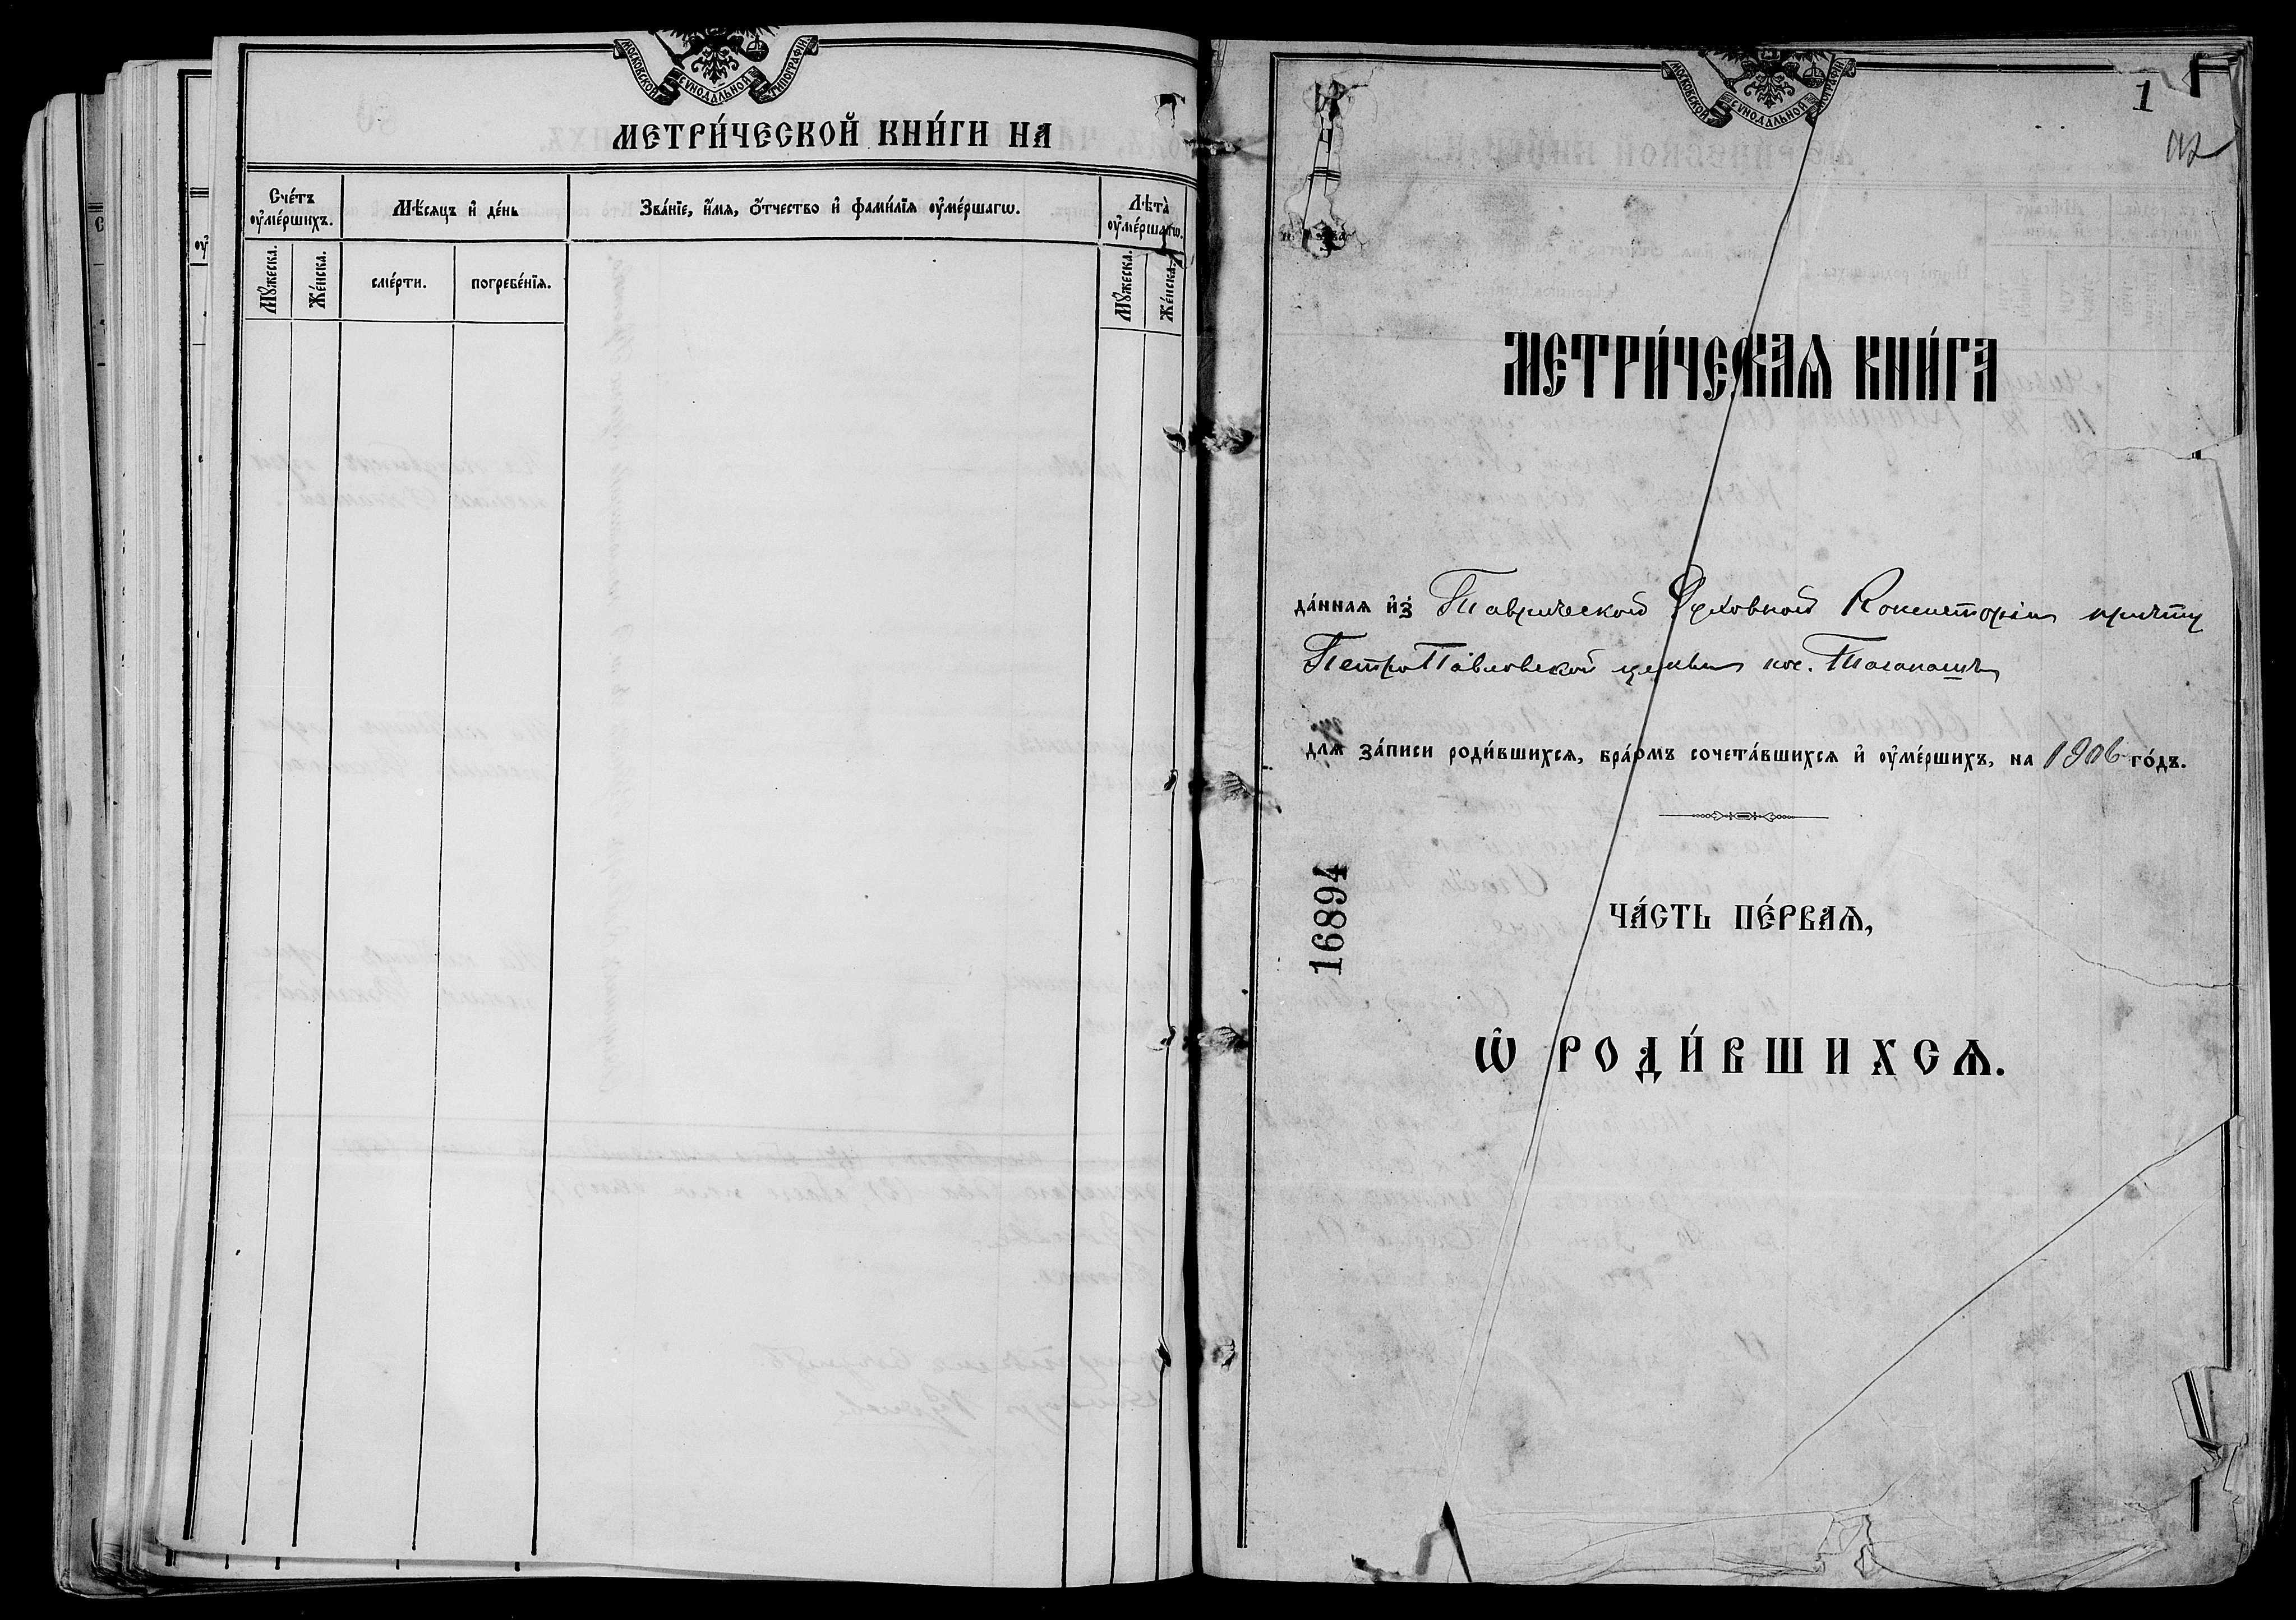 МОСКОВСКОЙ СѴНОДАЛЬНОЙ ТИПОГРАФІИ
МЕТРИ́ЧЕСКОЙ КНИ́ГИ НА
Сче́тъ ᲂу҆ме́ршихъ.
Мѣ́сяцъ и҆ де́нь
Зва́нїе, и҆́мѧ, ѻ҆́тчество и҆ фами́лїѧ ᲂу҆ме́ршагѡ.
Лѣта̀ ᲂу҆ме́ршагѡ.
Мꙋ́жеска.
Же́нска.
сме́рти.
погребе́нїѧ.
Мꙋ́жеска.
Же́нска.
МОСКОВСКОЙ СѴНОДАЛЬНОЙ ТИПОГРАФІИ
1
МЕТРИ́ЧЕСКАѦ КНИ́ГА
да́ннаѧ и҆з̾ Таврической Духовной Консисторіи причту
ПетроПавловской церкви пос. Таганашъ
длѧ за́писи роди́вшихсѧ, бра́комъ сочета́вшихсѧ и҆ ᲂу҆ме́ршихъ, на 1906 го́дъ.
16894
ЧА́СТЬ ПЕ́РВАѦ,
Ѽ РОДИ́ВШИХСѦ.